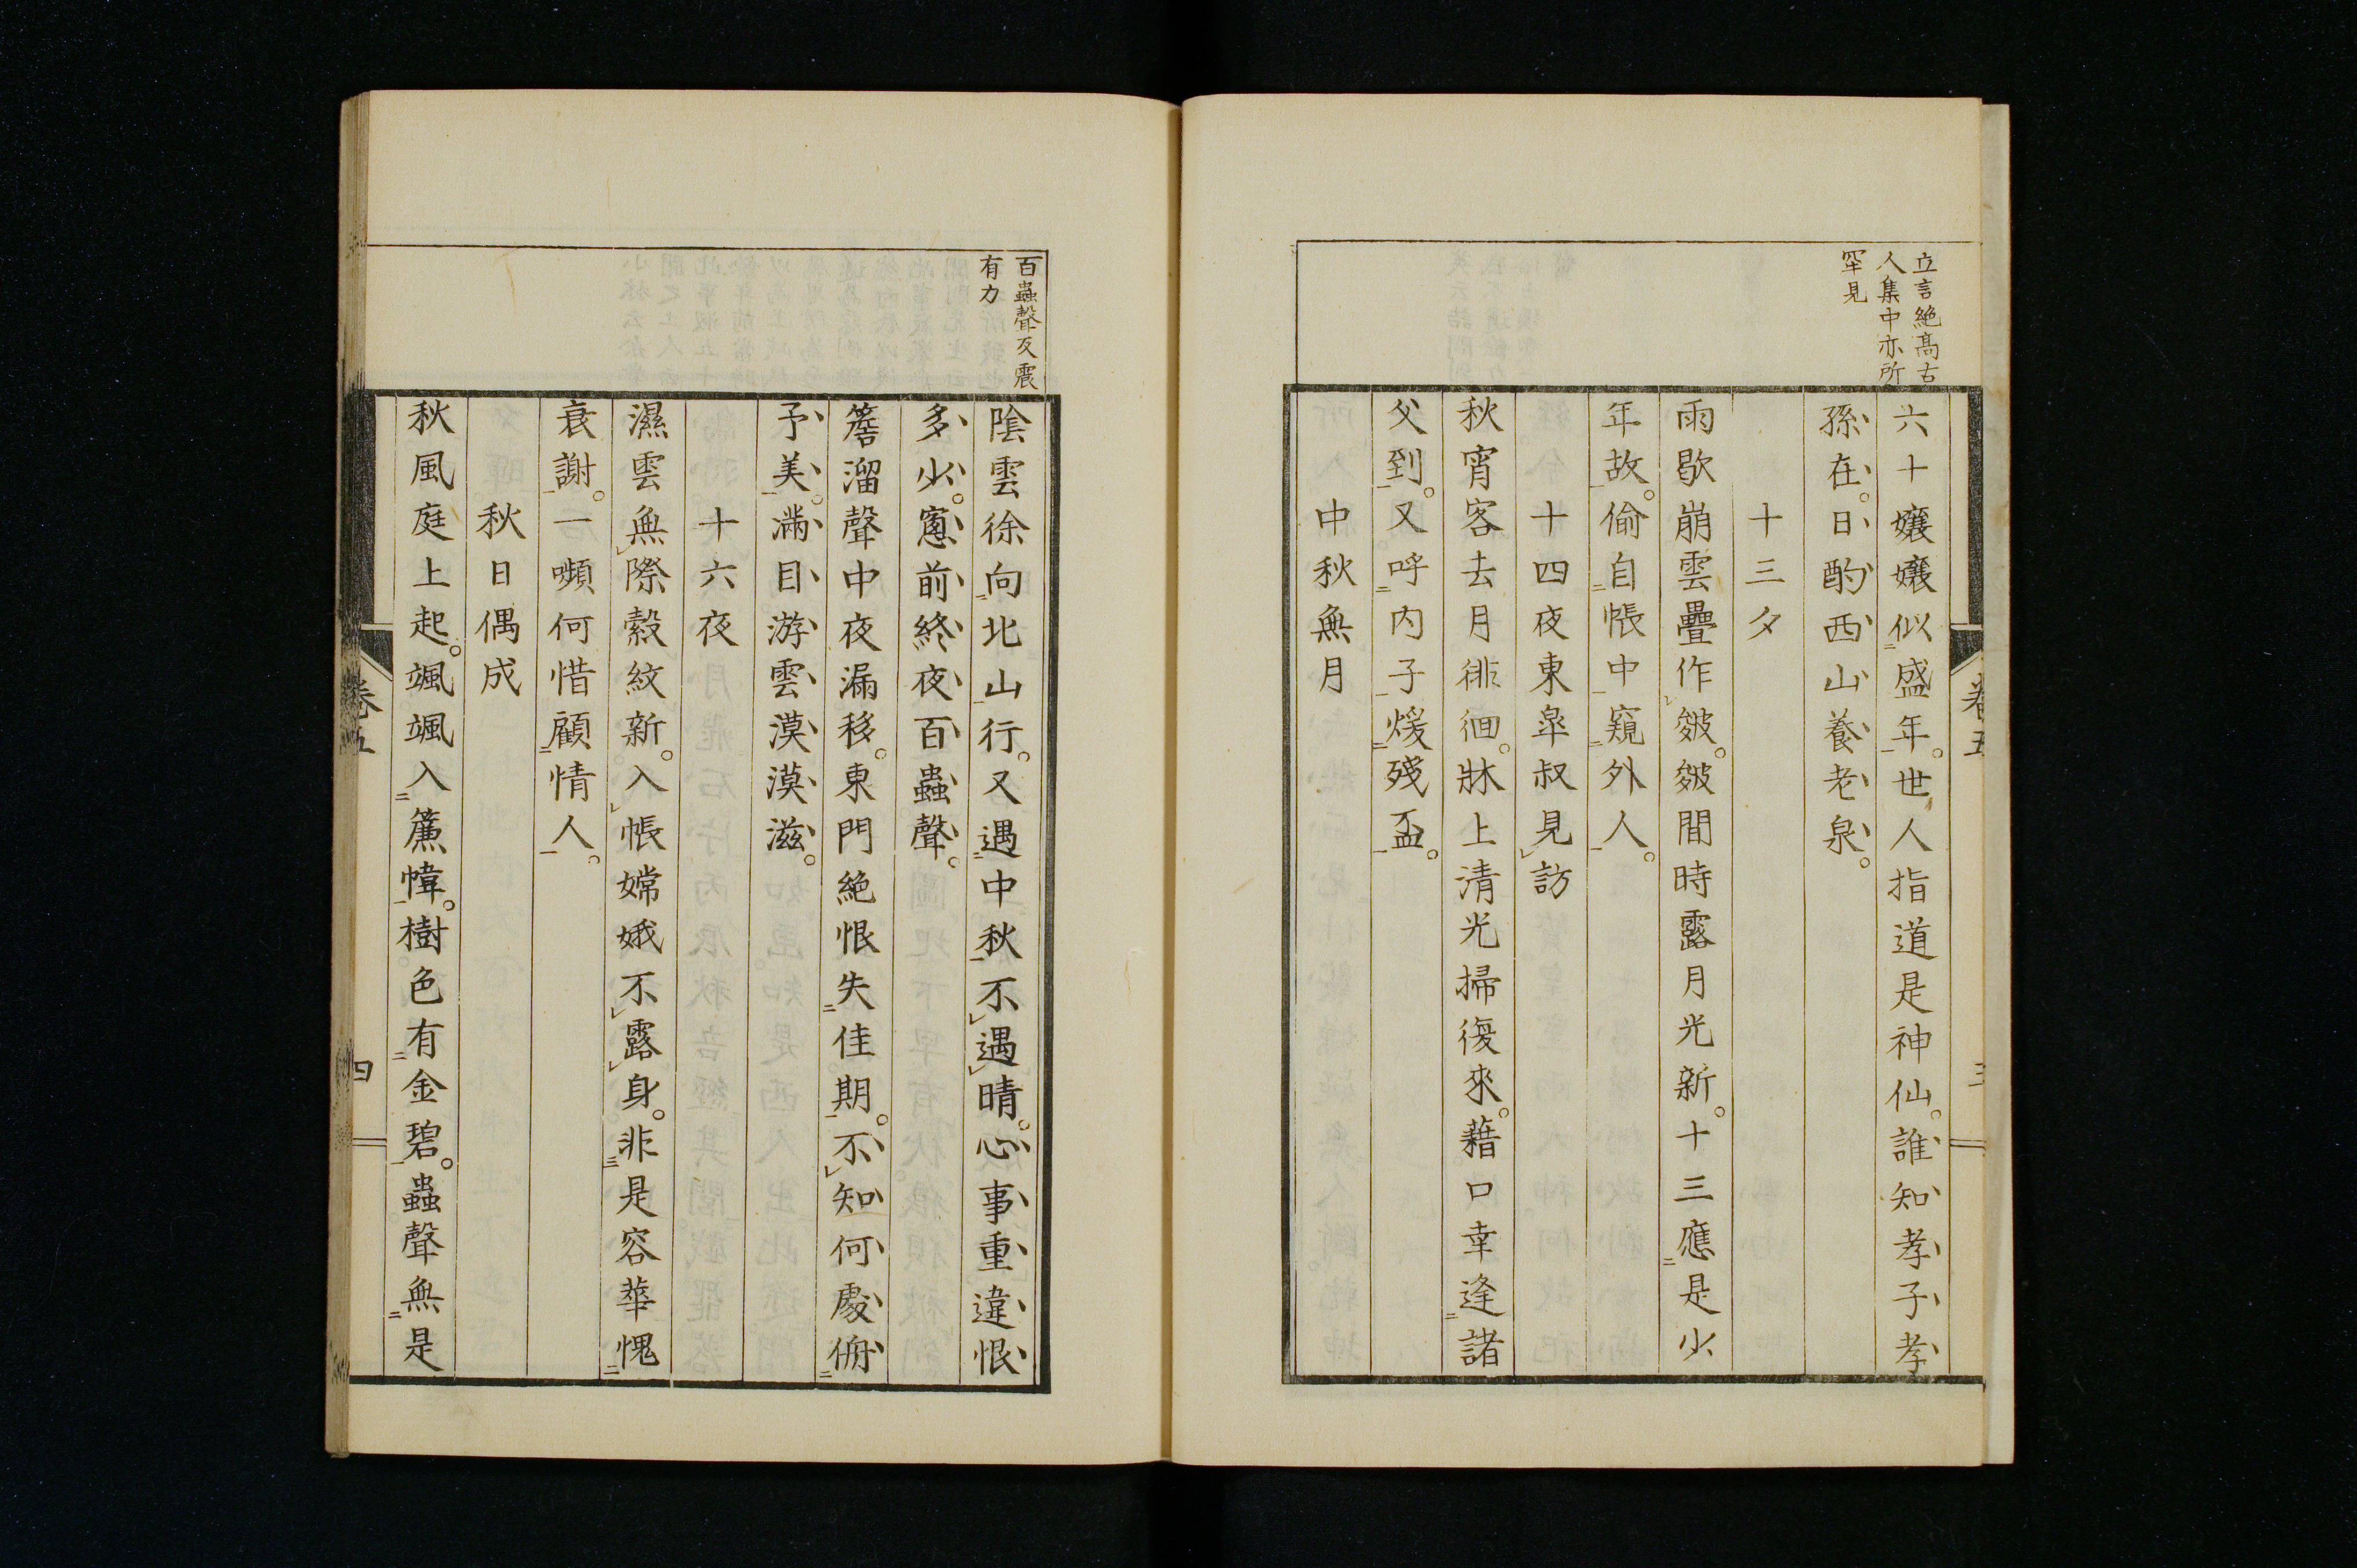 立言絶高古
人集中亦所
罕見
六十孃孃似盛年。世人指道是神仙。誰知孝子孝
孫在。日酌西山養老泉。
十三夕
雨歇崩雲疊作皴。皴間時露月光新。十三應是少
年故。偷自帳中窺外人。
十四夜東皐叔見訪
秋宵客去月徘徊。牀上清光掃復來。藉口幸逢諸
父到。又呼內子煖殘盃。
中秋無月
卷五
三
百蟲聲反震
有力
陰雲徐向北山行。又遇中秋不遇晴。心事重違恨
多少。窻前終夜百蟲聲。
簷溜聲中夜漏移。東門絶恨失佳期。不知何處俯
予美。滿目游雲漠漠滋。
十六夜
濕雲無際縠紋新。入帳嫦娥不露身。非是容華愧
衰謝。一嚬何惜顧情人。
秋日偶成
秋風庭上起。颯颯入簾幃。樹色有金碧。蟲聲無是
卷五
四